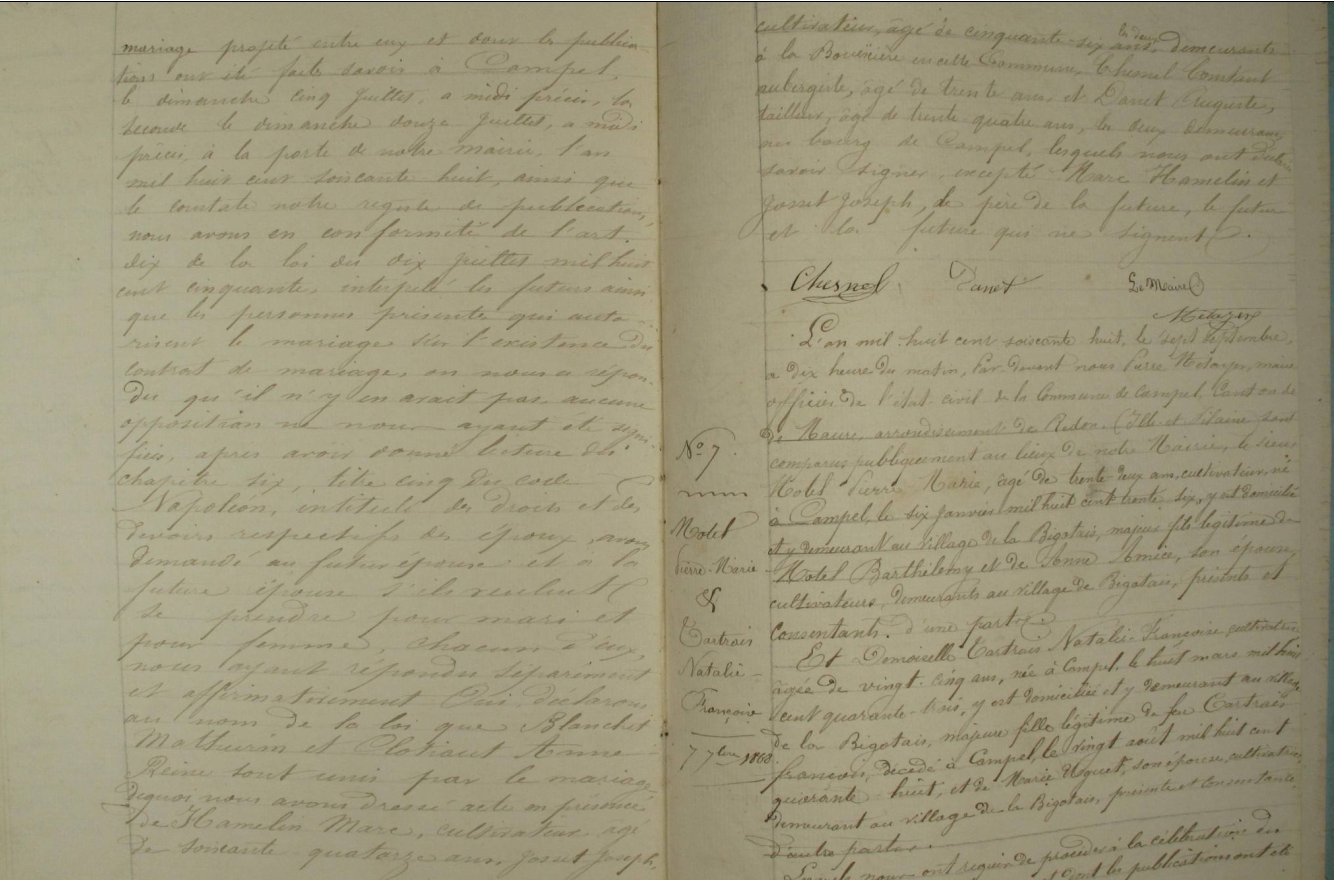 mariage projeté entre eux et dont les publica-
tions ont été faites savoir à Campel,
le dimanche cinq juillet, a midi précis, la
seconde le dimanche douze juillet, a midi
précis, à la porte de notre mairie, l'an
mil huit cent soixante huit, ainsi que
le constate notre registre de publication,
nous avons en conformité de l'art.
dix de la loi du dix juillet mil huit
cent cinquante, interpelé les futurs ainsi
que les personnes présente qui auto-
risent le mariage sur l'existence du
contrat de mariage, on nous a répon-
du qu'il n'y en avait pas aucune
opposition ne nous ayant été signi-
fiée, apres avoir donné lecture du
chapitre six, titre cinq du code
Napoléon, intitulé des droits et des
devoirs respectifs des époux, avons
demandé au futur époux et à la
future épouse s'ils veulent
se prendre pour mari et
pour femme, chacun d'eux,
nous ayant répondu séparément
et affirmativement Oui, déclarons
au nom de la loi que Blanchet
Mathurin et Clotiaux Anne
Reine sont unis par le mariage
dequoi nous avons dressé acte en présence
de Hamelin Marc, cultivateur âgé
de soixante quatorze ans, Josset Joseph,
cultivateur, âgé de cinquante-six ans, les deux demeurants
à la Bouëxière en cette Commune, Chesnel Constant
aubergiste, âgé de trente ans, et Danet Auguste,
tailleur, âgé de trente quatre ans, les deux demeurant
au bourg de Campel, lesquels nous ont déclaré
savoir signer, excepté Marc Hamelin et
Josset Joseph, le père de la future, le futur
et la future qui ne signent.
Chesnel Danet Le Maire
Métayer
L'an mil huit cent soixante huit, le sept septembre,
a dix heure du matin, Par devant nous Pierre Métayer, maire
officier de l'état civil de la Commune de Campel, Canton de
de Maure, arrondissement de Redon, (Ille et Vilaine) sont
comparus publiquement au lieux de notre Mairie, le sieur
Hotel Pierre Marie, âgé de trente-deux ans, cultivateur, né
à Campel, le six janvier mil huit cent trente six, y est domicilié
et y demeurant au village de la Bigotais, majeur fils légitime de
Hotel Barthélemy et de Anne Amice, son épouse,
cultivateurs, demeurants au village de Bigotais, présents et
consentants. d'une part
Et Demoiselle Tartrais Natalie-Françoise cultivatrice
âgée de vingt-cinq ans, née à Campel, le huit mars mil huit
cent quarante-trois, y est domiciliée et y demeurant au village
de la Bigotais, majeure fille légitime de feu Tartrais
françois, décédé à Campel, le vingt août mil huit cent
quarante huit, et de Marie Uguet, son épouse, cultivatrice
demeurant au village de la Bigotais, présente et consentante
d'autre part
Lesquels nous ont requis de procéder à la célébration du
et dont les publications ont été
No 7
Hotel
Pierre-Marie
&
Tartrais
Natalie-
Françoise
7 7bre 1868